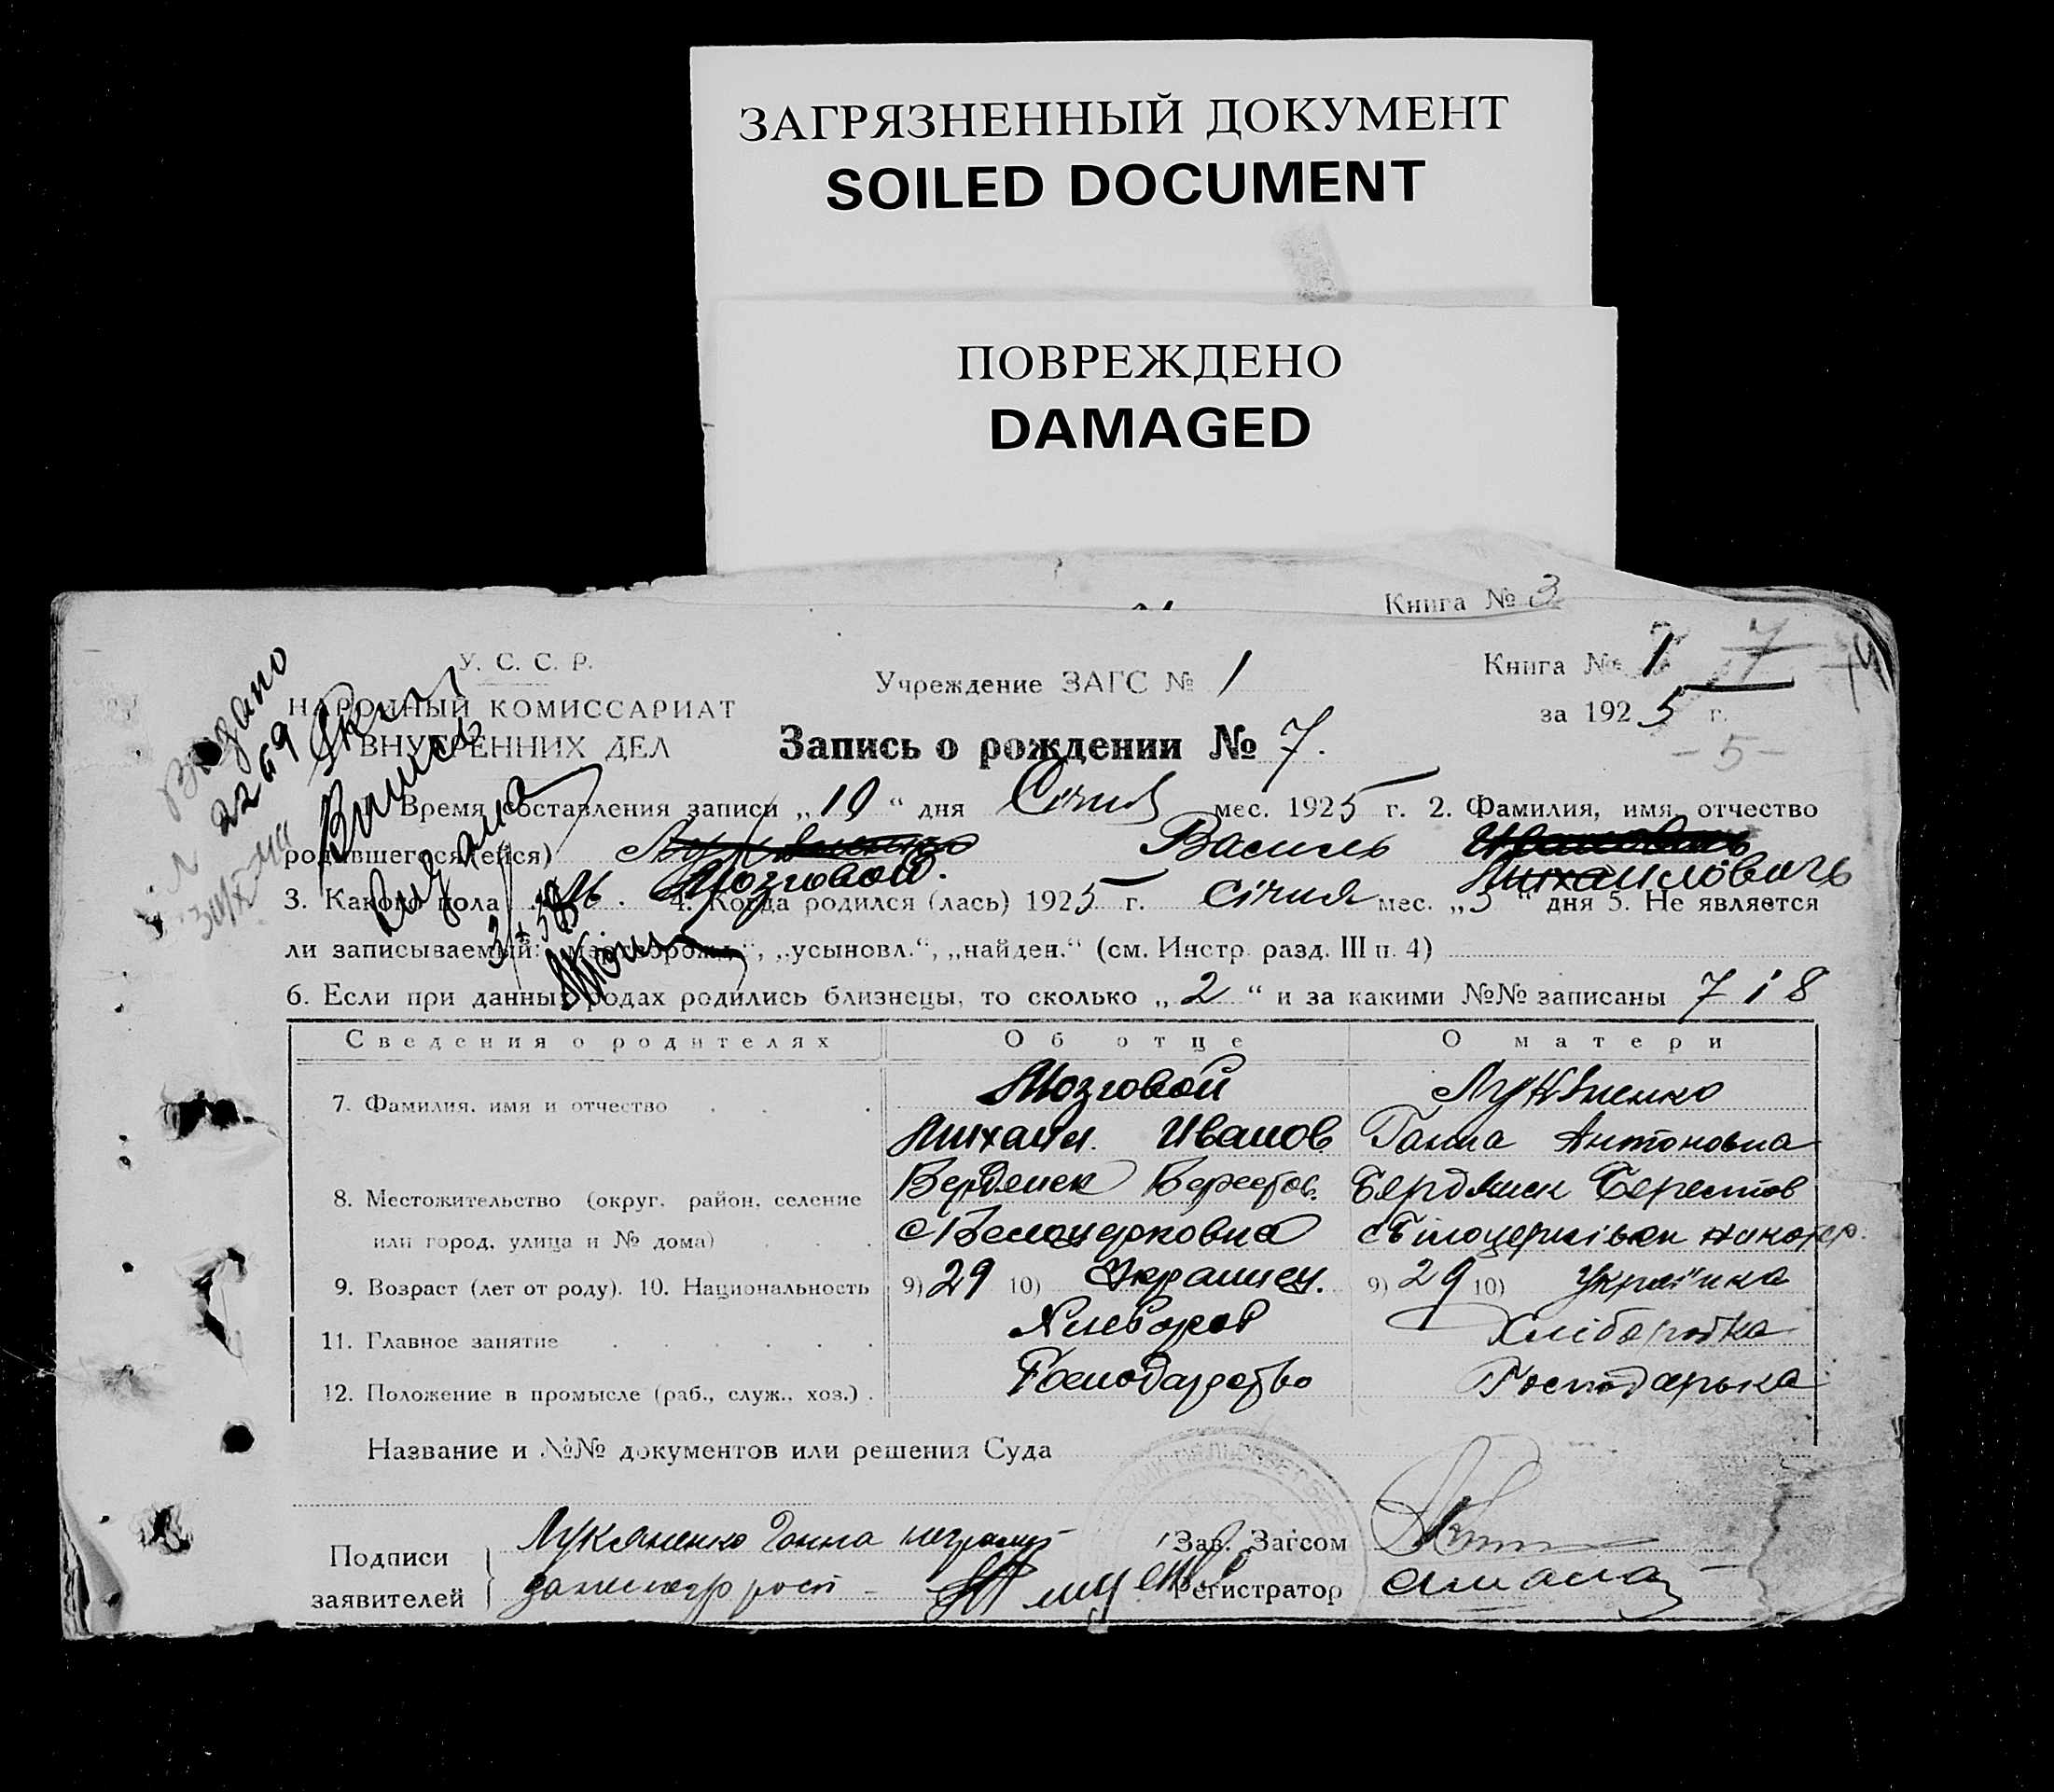 ЗАГРЯЗНЕННЫЙ ДОКУМЕНТ
SOILED DOCUMENT
ПОВРЕЖДЕНО
DAMAGED
Книга № 3
У. С. С. Р.
НАРОДНЫЙ КОМИССАРИАТ
ВНУТРЕННИХ ДЕЛ
Учреждение ЗАГС № 1
Книга № 1 7
за 1925 г.
- 5 -
Запись о рождении № 7.
Видано
2269
Время составления записи „10“ дня Січня мес. 1925 г. 2. Фамилия, имя, отчество
родившегося (ейся) Василь
Мозговой. Михаилович
3. Какого пола 4. Когда родился (лась) 1925 г. Січня мес. „5“ дня 5. Не является
ли записываемый: „мертворожд.“, „усыновл.“, „найден.“ (см. Инстр. разд. III п. 4)
6. Если при данных родах родились близнецы, то сколько „2“ и за какими №№ записаны 7 і 8
Сведения о родителях Об отце О матери
7. Фамилия, имя и отчество Мозговой Лукяненко
Михаил Иванов. Ганна Антоновна
8. Местожительство (округ, район, селение Бердянск Берестов. Бердянск Берестов
или город, улица и № дома) с Белоцерковка
9. Возраст (лет от роду). 10. Национальность 9) 29 10) Украинец. 9) 29 10) Україніка
11. Главное занятие Хлебороб Хліборобка
12. Положение в промысле (раб., служ., хоз.) Господарство Господарька
Название и №№ документов или решения Суда
Подписи заявителей Лукяненко Ганна неграмот
Зав. Загсом
Регистратор